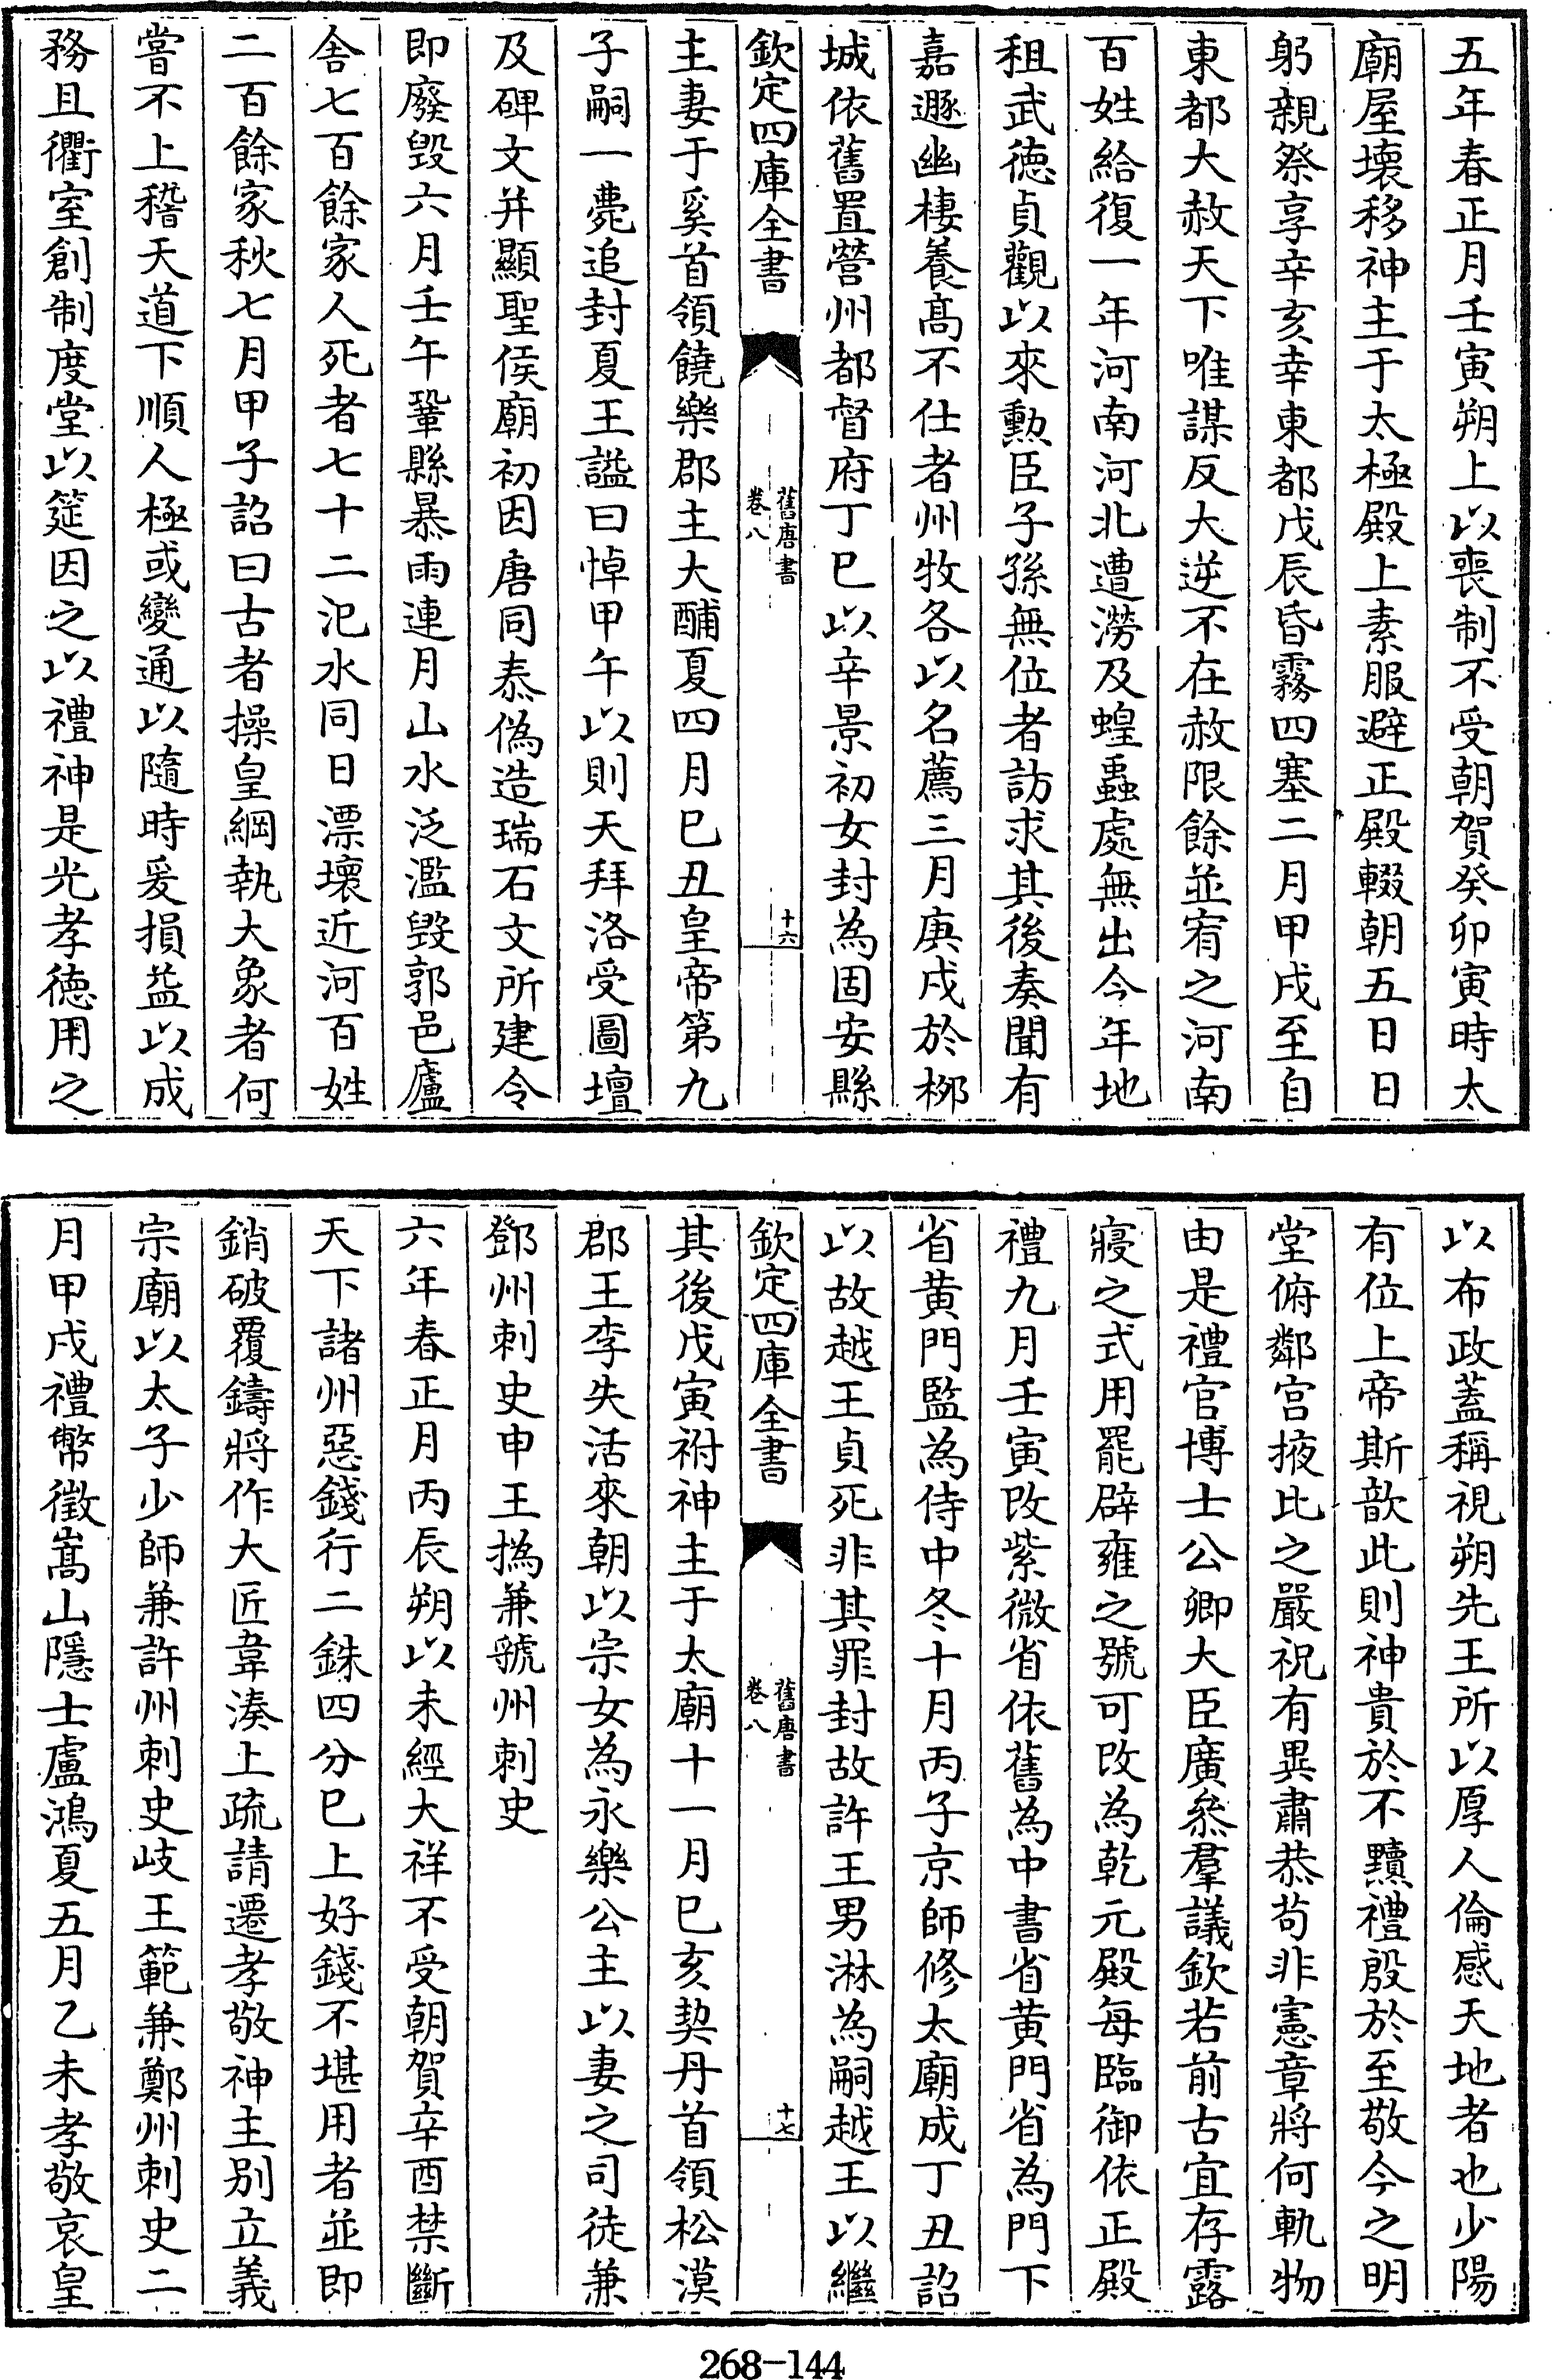 五年春正月壬寅朔上以喪制不受朝賀癸卯寅時太
廟屋壞移神主于太極殿上素服避正殿輟朝五日日
躬親祭享辛亥幸東都戊辰昏霧四塞二月甲戌至自
東都大赦天下唯謀反大逆不在赦限餘並宥之河南
百姓給復一年河南河北遭澇及蝗蟲處無出今年地
租武德貞觀以來勲臣子孫無位者訪求其後奏聞有
嘉遯幽棲養髙不仕者州牧各以名薦三月庚戌於栁
城依舊置營州都督府丁巳以辛景初女封為固安縣
欽定四庫全書
舊唐書
卷八
十六
主妻于奚首領饒樂郡主大酺夏四月巳丑皇帝第九
子嗣一薨追封夏王謚曰悼甲午以則天拜洛受圖壇
及碑文并顯聖侯廟初因唐同泰偽造瑞石文所建令
即廢毁六月壬午鞏縣暴雨連月山水泛濫毁郭邑廬
舍七百餘家人死者七十二汜水同日漂壞近河百姓
二百餘家秋七月甲子詔曰古者操皇綱執大象者何
嘗不上稽天道下順人極或變通以隨時爰損益以成
務且衢室創制度堂以筵因之以禮神是光孝德用之
以布政蓋稱視朔先王所以厚人倫感天地者也少陽
有位上帝斯歆此則神貴於不黷禮殷於至敬今之明
堂俯鄰宫掖比之嚴祝有異肅恭苟非憲章將何軌物
由是禮官博士公卿大臣廣叅羣議欽若前古宜存露
寢之式用罷辟雍之號可改為乾元殿每臨御依正殿
禮九月壬寅改紫微省依舊為中書省黄門省為門下
省黄門監為侍中冬十月丙子京師修太廟成丁丑詔
以故越王貞死非其罪封故許王男淋為嗣越王以繼
欽定四庫全書
舊唐書
卷八
十七
其後戊寅祔神主于太廟十一月巳亥契丹首領松漠
郡王李失活來朝以宗女為永樂公主以妻之司徒兼
鄧州刺史申王撝兼虢州刺史
六年春正月丙辰朔以未經大祥不受朝賀辛酉禁斷
天下諸州惡錢行二銖四分巳上好錢不堪用者並即
銷破覆鑄將作大匠韋湊上疏請遷孝敬神主别立義
宗廟以太子少師兼許州刺史岐王範兼鄭州刺史二
月甲戌禮幣徵嵩山隱士盧鴻夏五月乙未孝敬哀皇
268-144